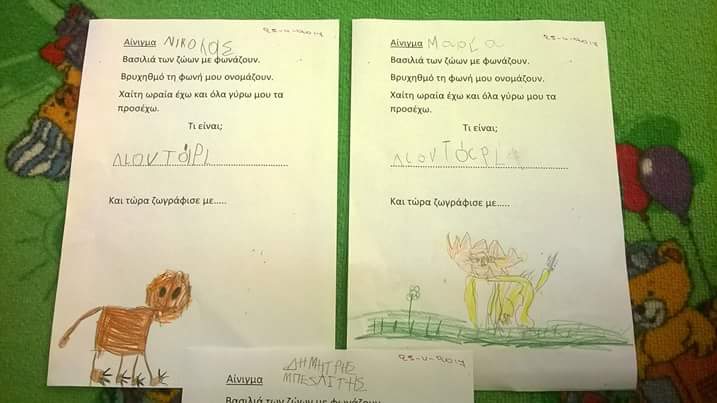 Αίνιγμα ΝΙΚΟΛΑΣ
Βασιλιά των ζώων με φωνάζουν.
Βρυχηθμό τη φωνή μου ονομάζουν.
Χαίτη ωραία έχω και όλα γύρω μου τα
προσέχω.
Τι είναι;
ΛΙΟΝΤΆΡΙ
Και τώρα ζωγράφισε με.....
Αίνιγμα Μαρία
Βασιλιά των ζώων με φωνάζουν.
Βρυχηθμό τη φωνή μου ονομάζουν.
Χαίτη ωραία έχω και όλα γύρω μου τα
προσέχω.
Τι είναι;
ΛΙΟΝΤΆΡΙ
Και τώρα ζωγράφισε με.....
ΔΗΜΗΤΡΗΣ
Αίνιγμα ΜΠΕΣΛΙΤΗΣ
Βασιλιά των ζώων με φωνάζουν